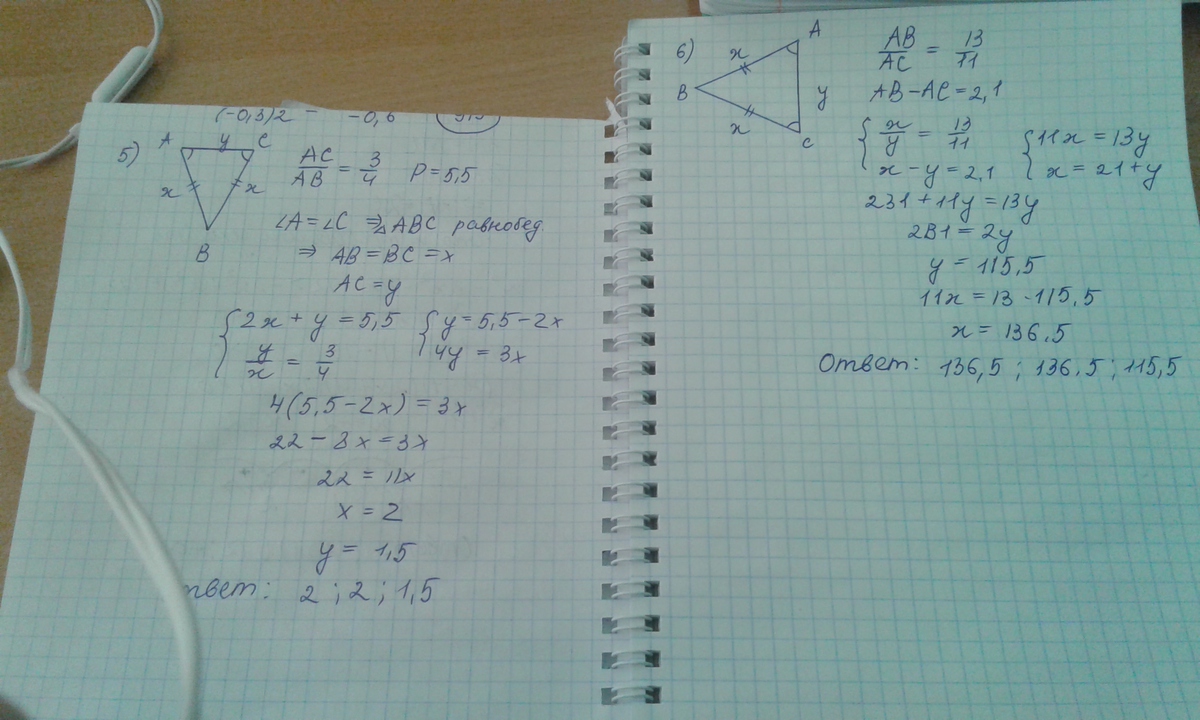 (-0,3)2 = -0,6
5) A y C
x x
B
AC/AB = 3/4 P=5,5
∠A=∠C ⇒ △ABC равнобед.
⇒ AB=BC=x
AC=y
{2x+y=5,5 {y=5,5-2x
y/x = 3/4 4y=3x
4(5,5-2x)=3x
22-8x=3x
22=11x
x=2
y=1,5
твет: 2; 2; 1,5
6) A
x
B y
x
C
AB/AC = 13/11
AB-AC=2,1
{x/y = 13/11 {11x=13y
x-y=2,1 x=21+y
231+11y=13y
231=2y
y=115,5
11x=13·115,5
x=136.5
Ответ: 136,5; 136.5; 115,5